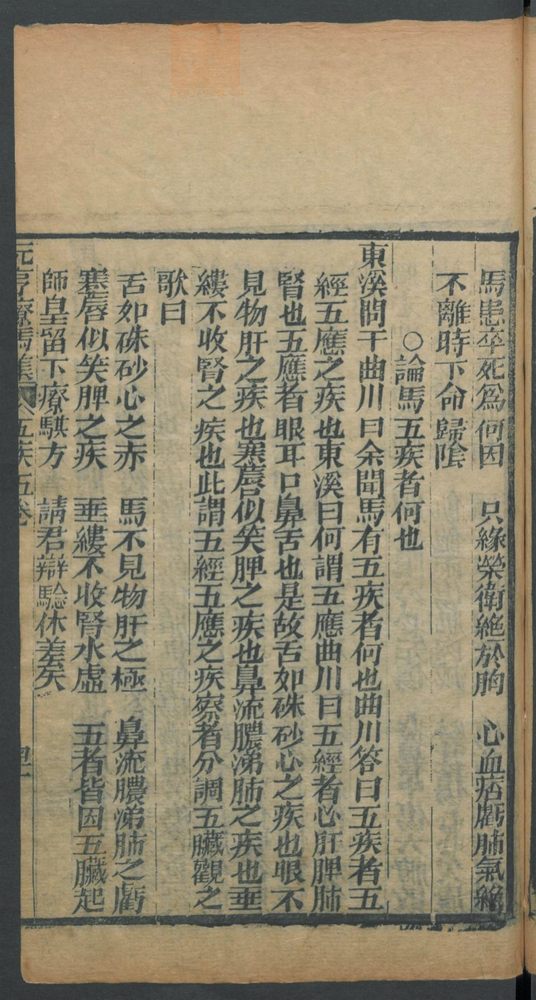 馬患卒死爲何因　只緣榮衛絕於胸　心血痞虧肺氣絕
不離時下命歸陰
○論馬五疾者何也
東溪問于曲川曰余聞馬有五疾者何也曲川答曰五疾者五
經五應之疾也東溪曰何謂五應曲川曰五經者心肝脾肺
腎也五應者眼耳口鼻舌也是故舌如硃砂心之疾也眼不
見物肝之疾也蹇唇似笑脾之疾也鼻流膿涕肺之疾也垂
縷不收腎之疾也此謂五經五應之疾察者分調五臟觀之
歌曰
舌如硃砂心之赤　馬不見物肝之極　鼻流膿涕肺之虧
蹇唇似笑脾之疾　垂縷不收腎水虛　五者皆因五臟起
師皇留下療騏方　請君辯騐休差矣
元亨療馬集　五疾五卷